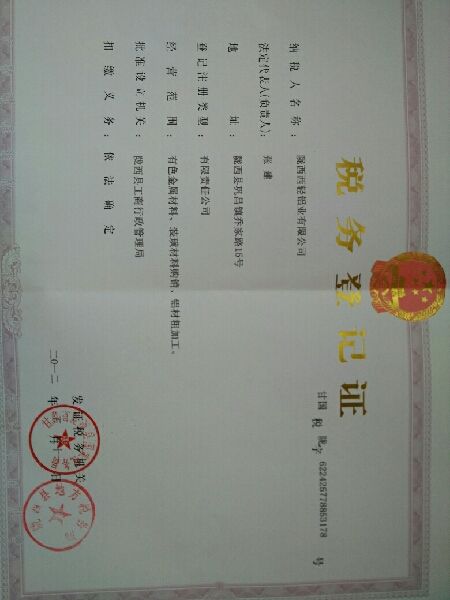 税务登记证
甘国 税 陇 字 622425778853178 号
纳税人名称： 陇西西轻铝业有限公司
法定代表人(负责人)： 张建
地址： 陇西县巩昌镇乔家路15号
登记注册类型： 有限责任公司
经营范围： 有色金属材料、装璜材料购销、铝材粗加工。
批准设立机关： 陇西县工商行政管理局
扣缴义务： 依法确定
发证税务机关
二〇一二年 月 日